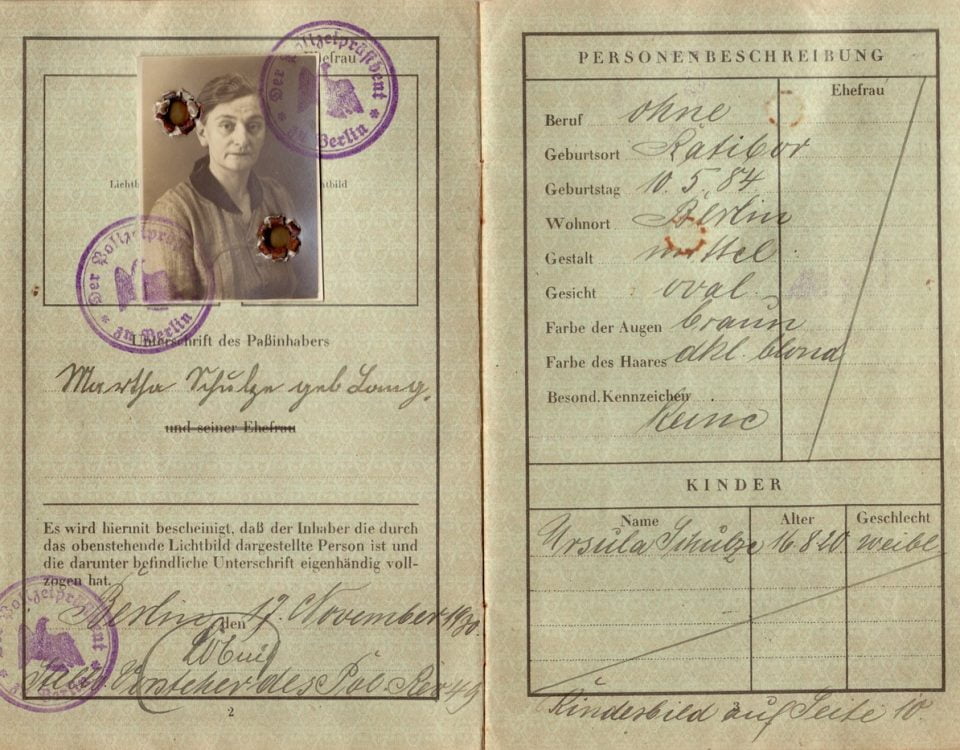 Der Polizeipräsident
Ehefrau
zu Berlin
Lichtb
htbild
Der Polizeipräsident
zu Berlin
Unterschrift des Paßinhabers
Martha Schulze geb Lang.
und seiner Ehefrau
Es wird hiermit bescheinigt, daß der Inhaber die durch
das obenstehende Lichtbild dargestellte Person ist und
die darunter befindliche Unterschrift eigenhändig voll-
zogen hat.
Berlin den 17. November 1930
des Pol. Rev 49
2
PERSONENBESCHREIBUNG
Ehefrau
Beruf ohne
Geburtsort Ratibor
Geburtstag 10. 5. 84
Wohnort Berlin
Gestalt mittel
Gesicht oval
Farbe der Augen braun
Farbe des Haares dkl. blond
Besond. Kennzeichen
Keine
KINDER
Name Alter Geschlecht
Ursula Schulze 16 8 20 weibl
Kindesbild auf Seite 10.